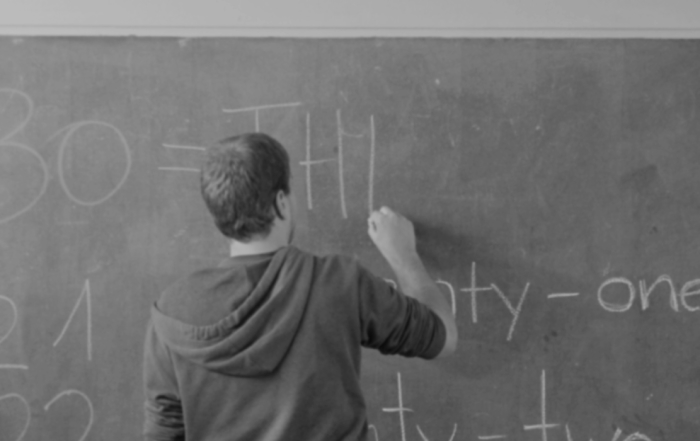 30 = THI
21 nty-one
22 nty-two